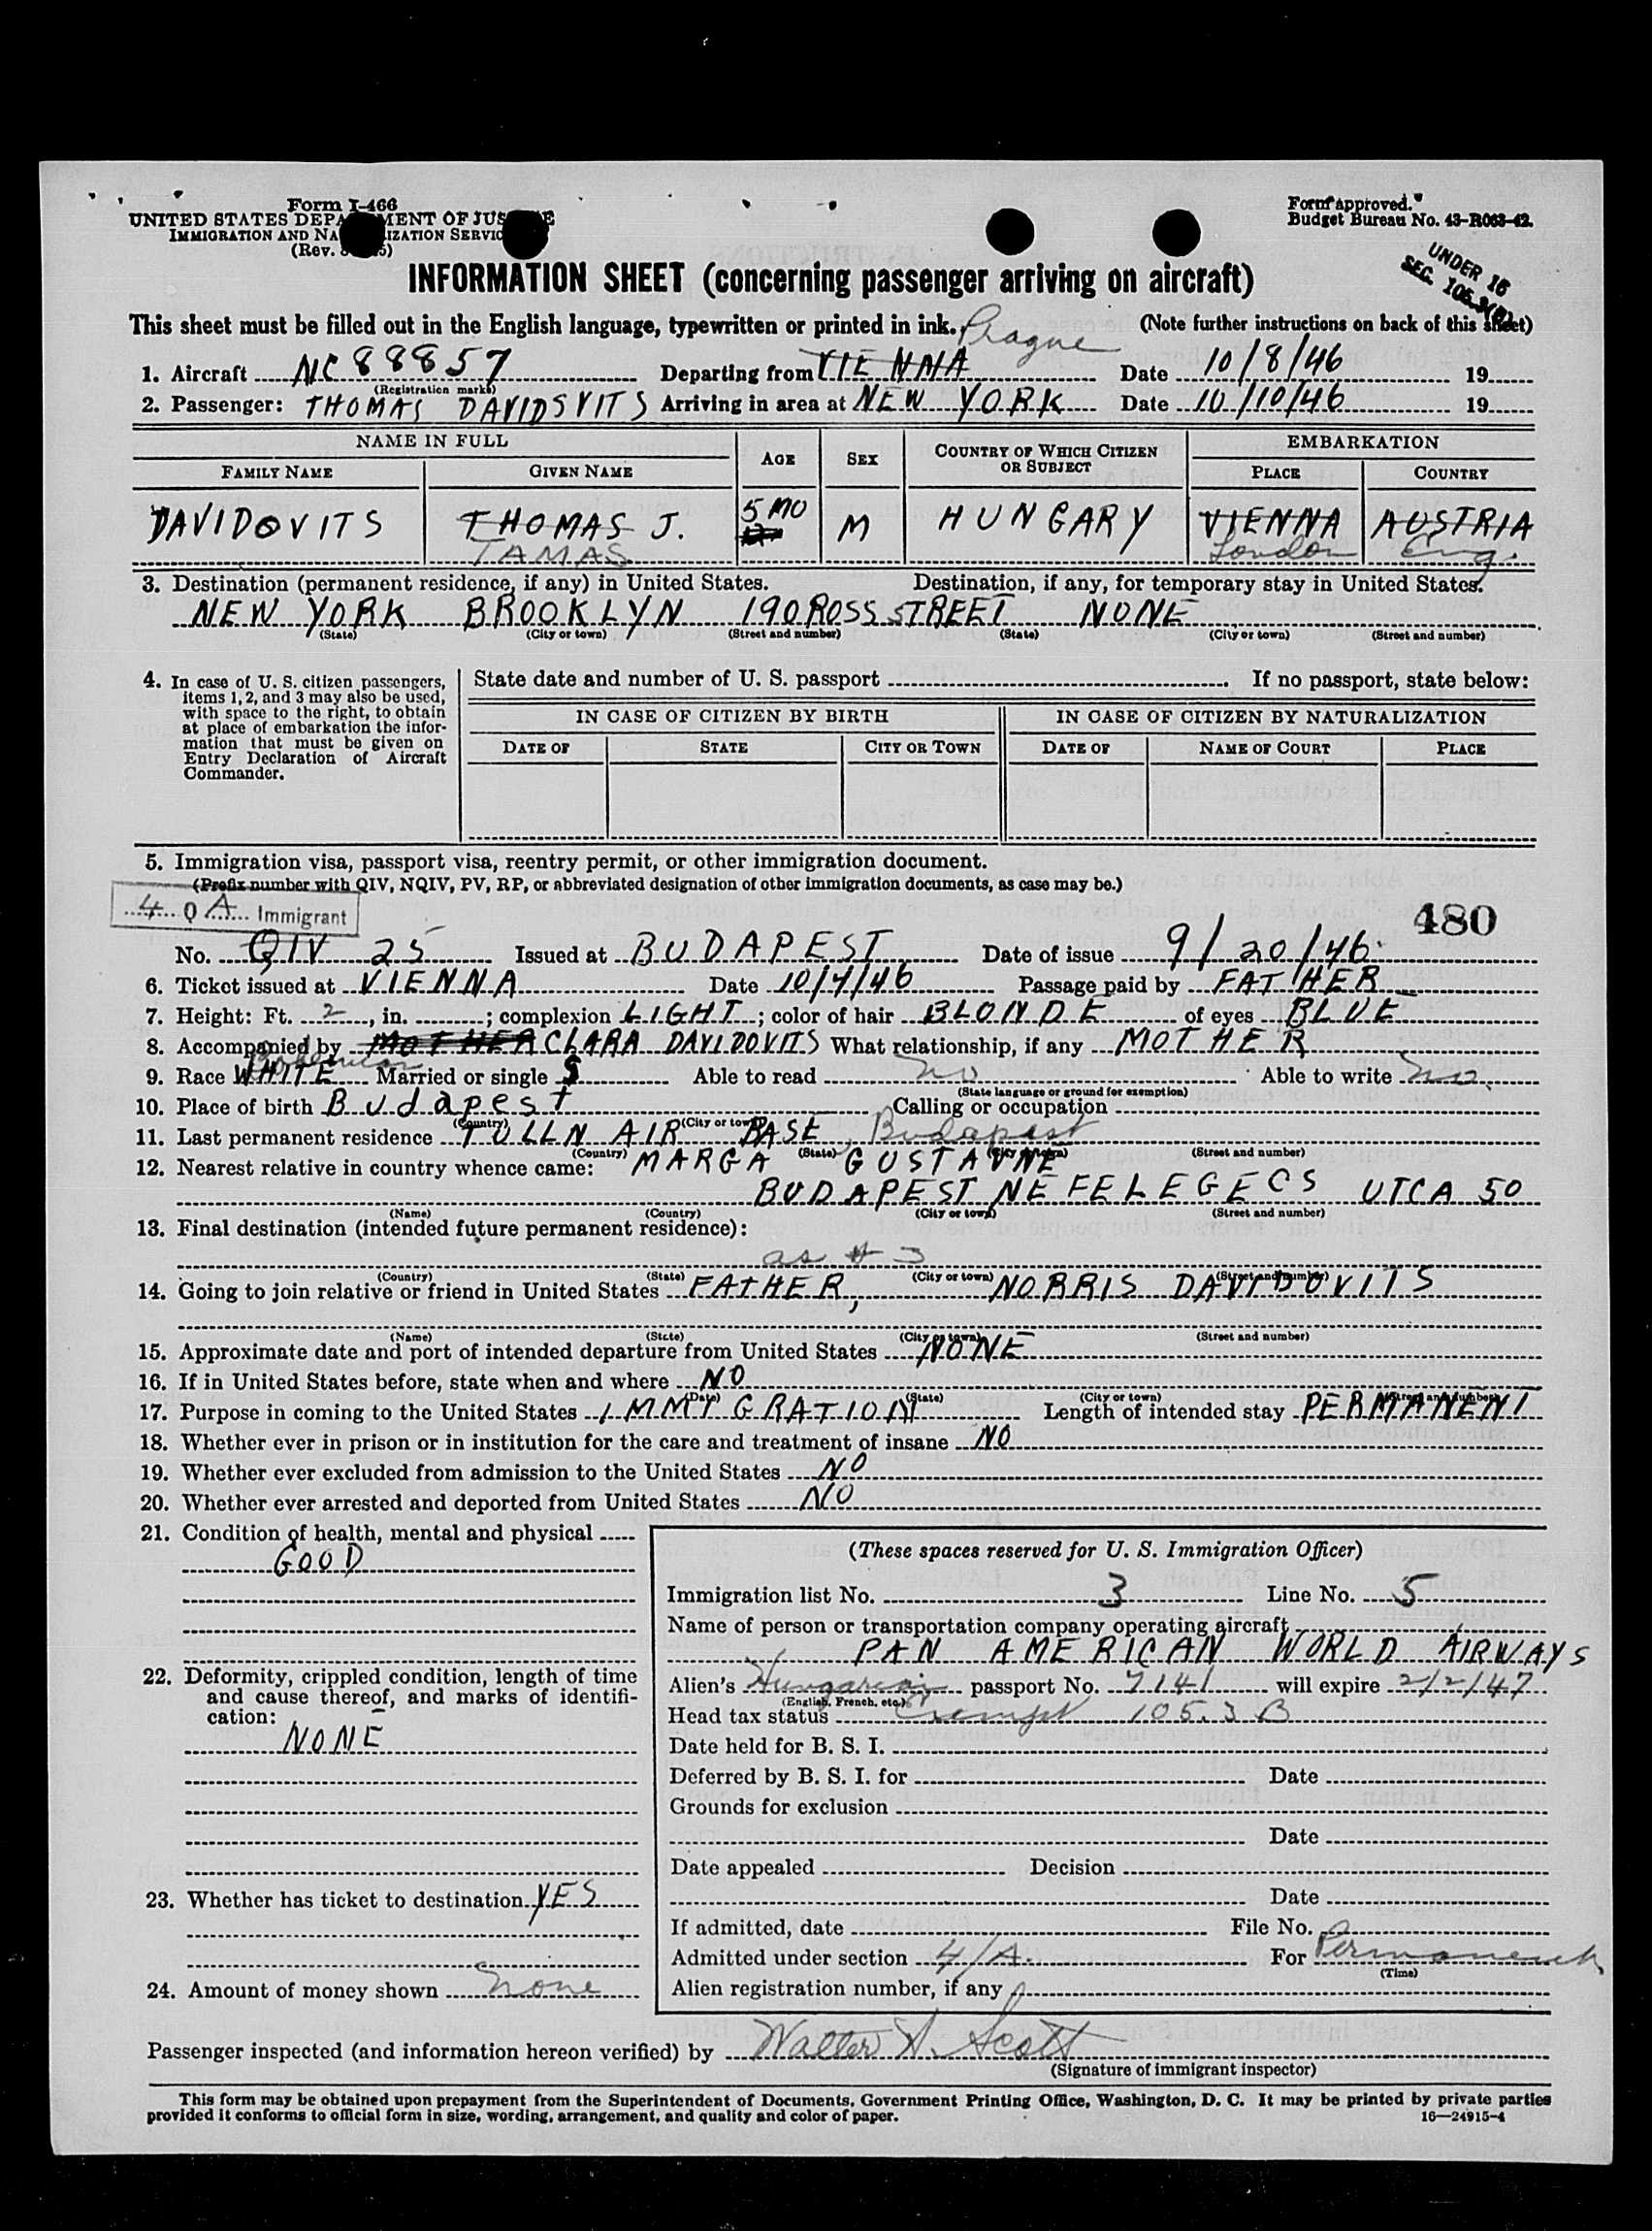 Form I-466
UNITED STATES DEPA MENT OF JUS E
IMMIGRATION AND NA IZATION SERVIC
(Rev. 5)
Form approved.
Budget Bureau No. 43-R063-42.
UNDER 16
SEC. 105.3(B)
INFORMATION SHEET (concerning passenger arriving on aircraft)
This sheet must be filled out in the English language, typewritten or printed in ink. (Note further instructions on back of this sheet)
Prague
1. Aircraft NC 88857 Departing from VIENNA Date 10/8/46 19
(Registration marks)
2. Passenger: THOMAS DAVIDSVITS Arriving in area at NEW YORK Date 10/10/46 19
NAME IN FULL AGE SEX COUNTRY OF WHICH CITIZEN OR SUBJECT EMBARKATION
FAMILY NAME GIVEN NAME PLACE COUNTRY
DAVIDOVITS THOMAS J. 5 MO M HUNGARY VIENNA AUSTRIA
TAMAS London Eng.
3. Destination (permanent residence, if any) in United States. Destination, if any, for temporary stay in United States.
NEW YORK BROOKLYN 190 ROSS STREET NONE
(State) (City or town) (Street and number) (State) (City or town) (Street and number)
4. In case of U. S. citizen passengers, items 1, 2, and 3 may also be used, with space to the right, to obtain at place of embarkation the information that must be given on Entry Declaration of Aircraft Commander.
State date and number of U. S. passport If no passport, state below:
IN CASE OF CITIZEN BY BIRTH IN CASE OF CITIZEN BY NATURALIZATION
DATE OF STATE CITY OR TOWN DATE OF NAME OF COURT PLACE
5. Immigration visa, passport visa, reentry permit, or other immigration document.
(Prefix number with QIV, NQIV, PV, RP, or abbreviated designation of other immigration documents, as case may be.)
4 0 A Immigrant
480
No. QIV 25 Issued at BUDAPEST Date of issue 9/20/46.
6. Ticket issued at VIENNA Date 10/4/46 Passage paid by FATHER
7. Height: Ft. 2, in. ; complexion LIGHT; color of hair BLONDE of eyes BLUE
8. Accompanied by MOTHER CLARA DAVIDOVITS What relationship, if any MOTHER
Bohemian
9. Race WHITE Married or single S Able to read no Able to write no.
(State language or ground for exemption)
10. Place of birth Budapest Calling or occupation
(Country) (City or town)
11. Last permanent residence TULLN AIR BASE, Budapest
(Country) (State) (City or town) (Street and number)
12. Nearest relative in country whence came: MARGA GUSTAVNE
BUDAPEST NEFELEGECS UTCA 50
(Name) (Country) (City or town) (Street and number)
13. Final destination (intended future permanent residence):
as # 3
(Country) (State) (City or town) (Street and number)
14. Going to join relative or friend in United States FATHER, NORRIS DAVIDOVITS
(Name) (State) (City or town) (Street and number)
15. Approximate date and port of intended departure from United States NONE
16. If in United States before, state when and where NO
(Date) (State) (City or town) (Street and number)
17. Purpose in coming to the United States IMMIGRATION Length of intended stay PERMANENT
18. Whether ever in prison or in institution for the care and treatment of insane NO
19. Whether ever excluded from admission to the United States NO
20. Whether ever arrested and deported from United States NO
21. Condition of health, mental and physical
GOOD
22. Deformity, crippled condition, length of time and cause thereof, and marks of identification:
NONE
23. Whether has ticket to destination YES
24. Amount of money shown none
(These spaces reserved for U. S. Immigration Officer)
Immigration list No. 3 Line No. 5
Name of person or transportation company operating aircraft
PAN AMERICAN WORLD AIRWAYS
Alien's Hungarian passport No. 7141 will expire 2/2/47
(English, French, etc.)
Head tax status Exempt 105.3 B
Date held for B. S. I.
Deferred by B. S. I. for Date
Grounds for exclusion
Date
Date appealed Decision
Date
If admitted, date File No.
Admitted under section 4/A. For Permanent
(Time)
Alien registration number, if any
Passenger inspected (and information hereon verified) by Walter A. Scott
(Signature of immigrant inspector)
This form may be obtained upon prepayment from the Superintendent of Documents, Government Printing Office, Washington, D. C. It may be printed by private parties
provided it conforms to official form in size, wording, arrangement, and quality and color of paper. 16—24915-4